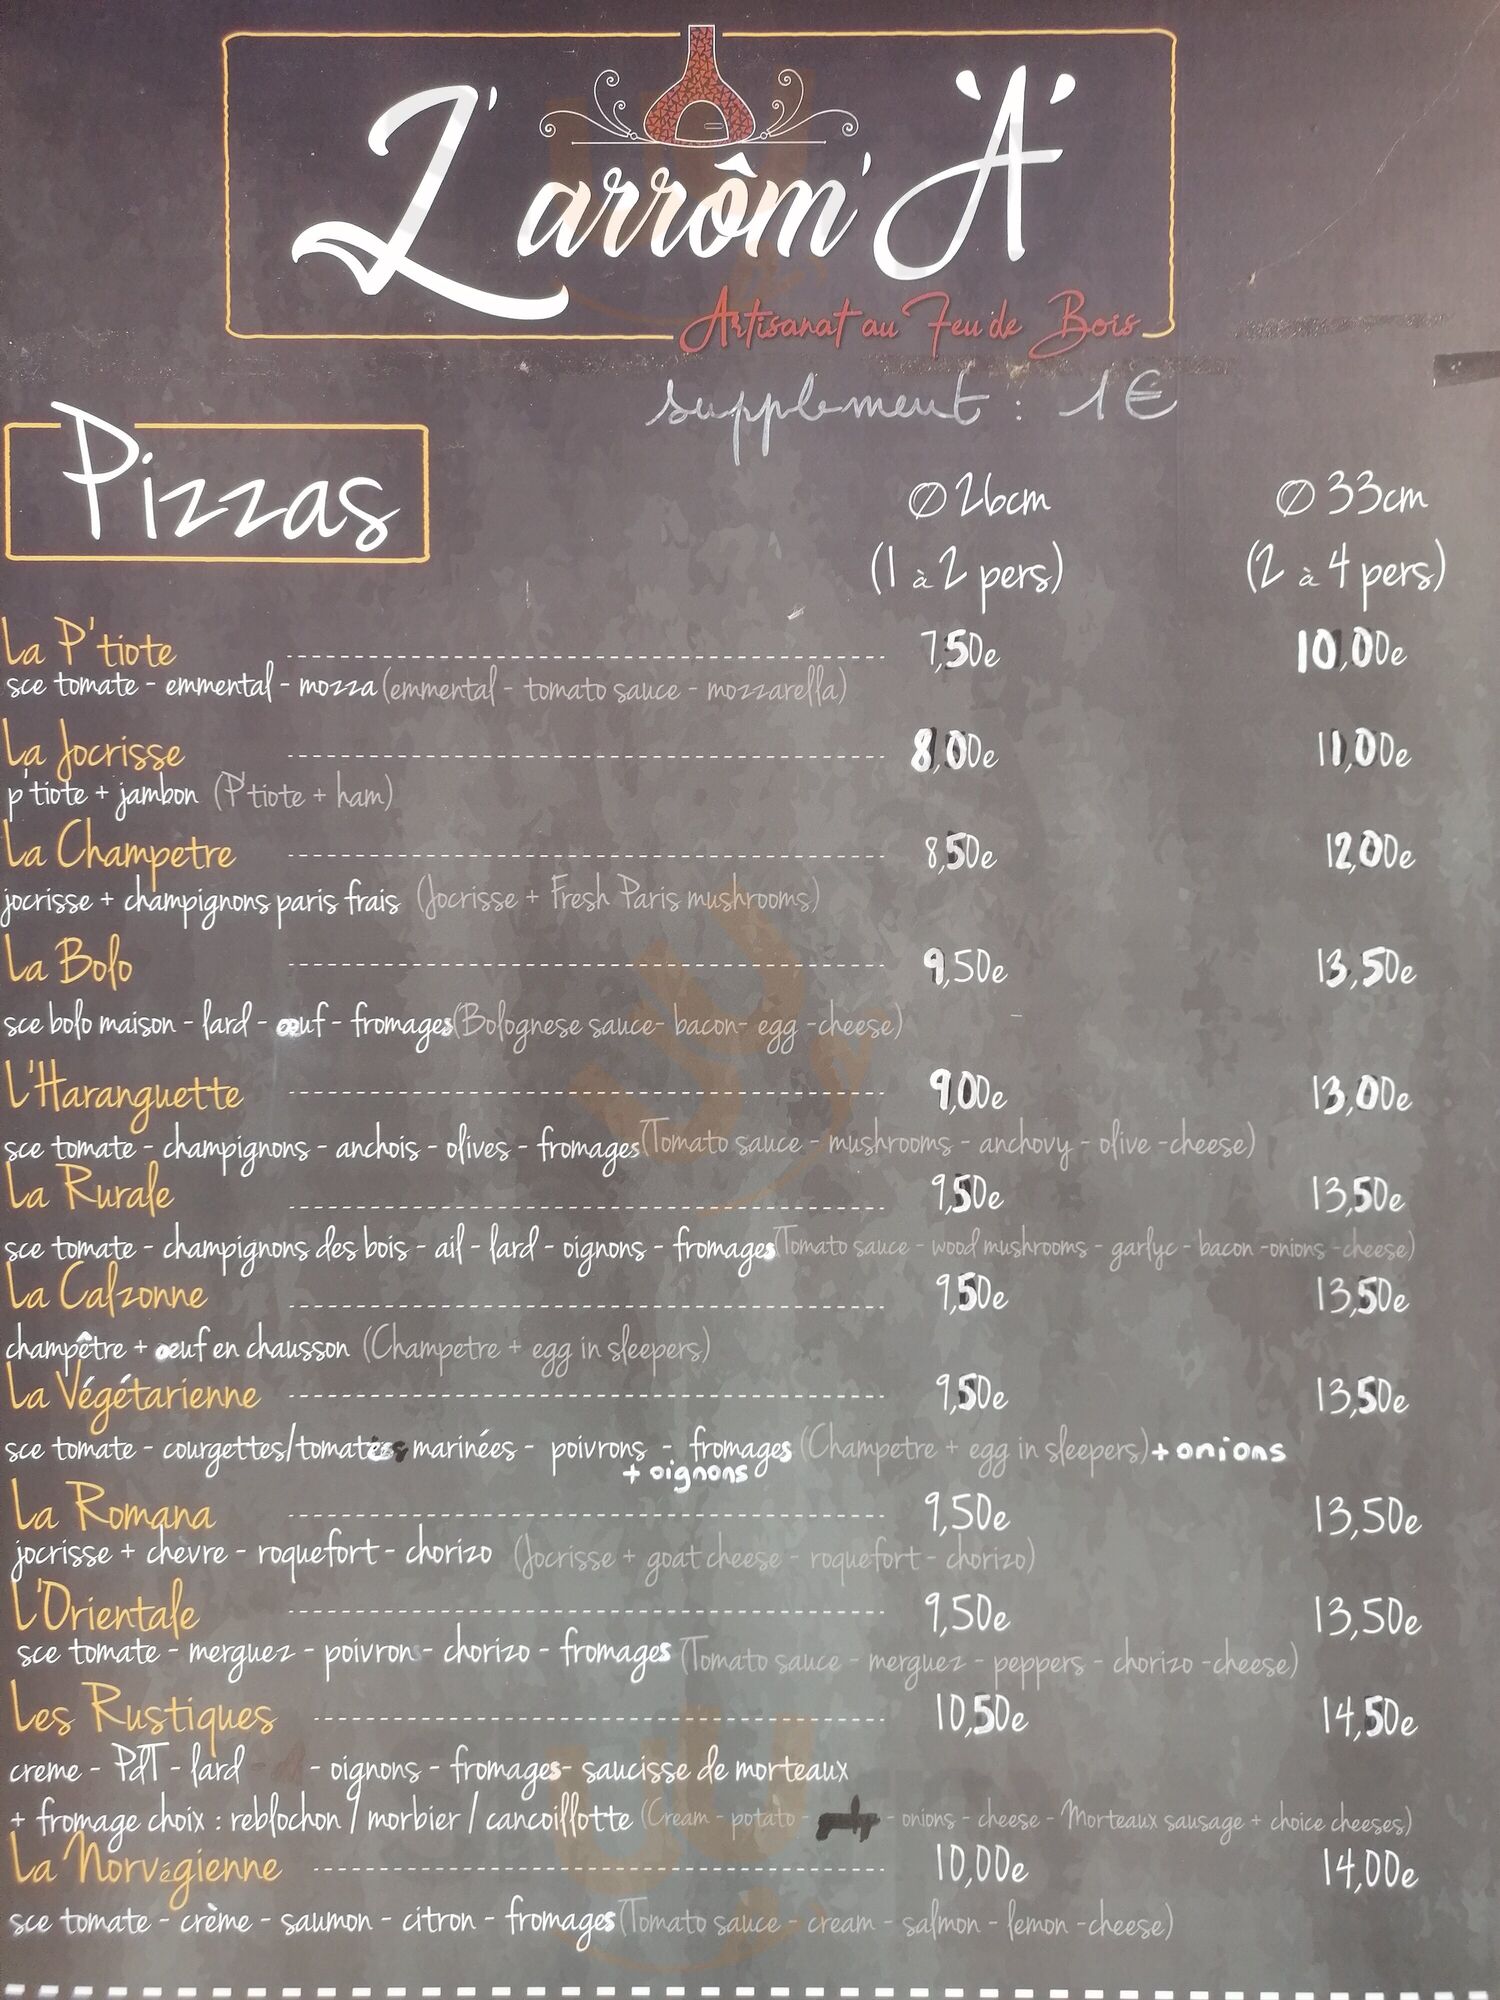 L'arrôm'A'
Artisanat au Feu de Bois
supplement : 1€
Pizzas
Ø 26cm Ø 33cm
(1 à 2 pers) (2 à 4 pers)
La P'tiote 7,50e 10,00e
sce tomate - emmental - mozza (emmental - tomato sauce - mozzarella)
La Jocrisse 8,00e 11,00e
p'tiote + jambon (P'tiote + ham)
La Champetre 8,50e 12,00e
jocrisse + champignons paris frais (Jocrisse + Fresh Paris mushrooms)
La Bolo 9,50e 13,50e
sce bolo maison - lard - œuf - fromages (Bolognese sauce- bacon- egg -cheese)
L'Haranguette 9,00e 13,00e
sce tomate - champignons - anchois - olives - fromages (Tomato sauce - mushrooms - anchovy - olive -cheese)
La Rurale 9,50e 13,50e
sce tomate - champignons des bois - ail - lard - oignons - fromages (Tomato sauce - wood mushrooms - garlyc - bacon -onions -cheese)
La Calzonne 9,50e 13,50e
champêtre + œuf en chausson (Champetre + egg in sleepers)
La Végétarienne 9,50e 13,50e
sce tomate - courgettes/tomates marinées - poivrons - fromages (Champetre + egg in sleepers) + onions
+ oignons
La Romana 9,50e 13,50e
jocrisse + chevre - roquefort - chorizo (Jocrisse + goat cheese - roquefort - chorizo)
L'Orientale 9,50e 13,50e
sce tomate - merguez - poivron - chorizo - fromages (Tomato sauce - merguez - peppers - chorizo -cheese)
Les Rustiques 10,50e 14,50e
creme - PdT - lard - oignons - fromages- saucisse de morteaux
+ fromage choix : reblochon / morbier / cancoillotte (Cream - potato - - onions - cheese - Morteaux sausage + choice cheeses)
La Norvégienne 10,00e 14,00e
sce tomate - crème - saumon - citron - fromages (Tomato sauce - cream - salmon - lemon -cheese)